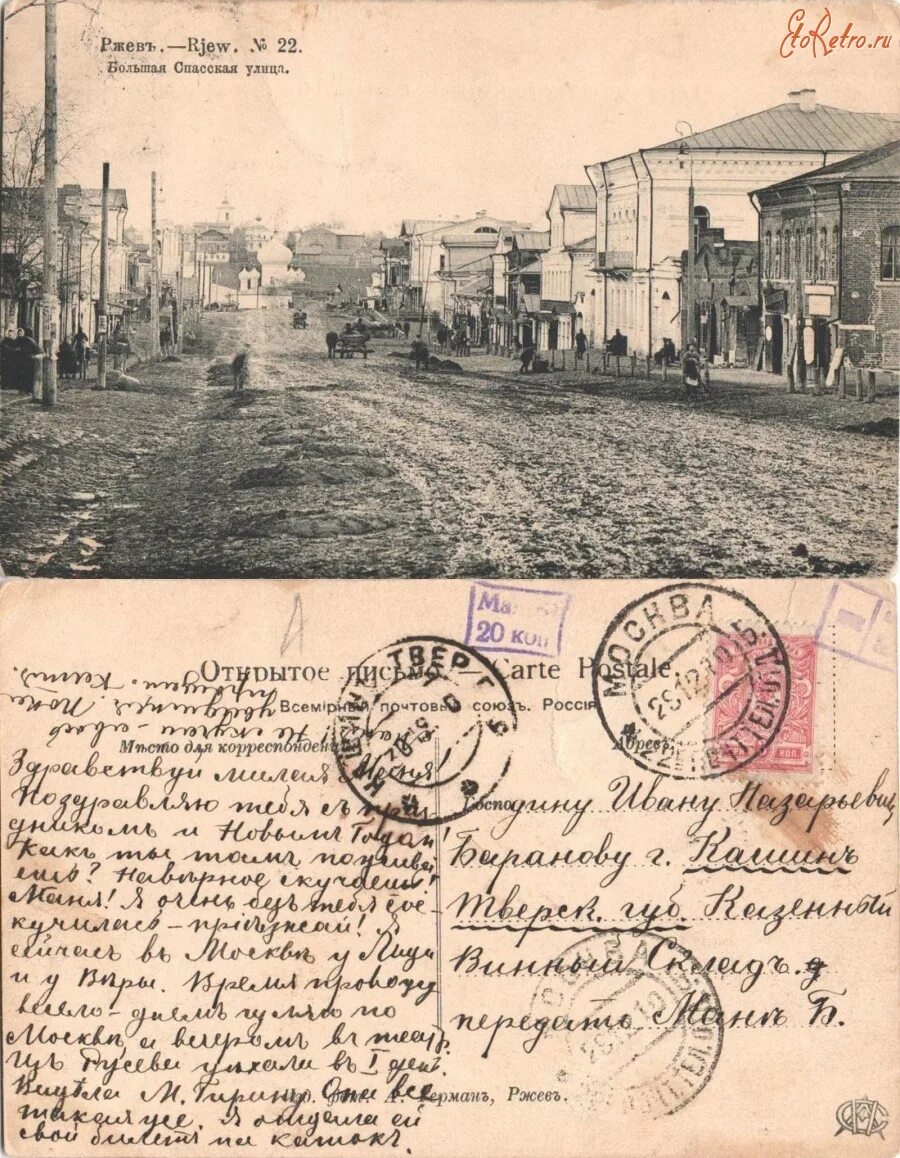 Ржевъ.—Rjew. № 22.
Большая Спасская улица.
EtoRetro.ru
20 коп
Открытое письмо. — Carte Postale.
Всемірный почтовый союзъ. Россія
Мѣсто для корреспонденціи
Адресъ
МОСКВА
КАШИНЪ ТВЕР. Г.
Не скучай
Здравствуй милая Маня
Поздравляю тебя съ праз
дникомъ и Новымъ Годомъ!
Какъ ты тамъ пожива
ешь? Навѣрное скучаешь!
Маня! Я очень безъ тебя сос-
кучилась – пріѣзжай! Я
сейчасъ въ Москвѣ у Лиди
и у Вѣры. Время провожу
весело – днемъ гуляю по
Москвѣ и вечеромъ въ теат
уѣхали въ I день.
Видѣла М. Она все
такая же. Я отдала ей
свой билетъ на катокъ.
Господину Ивану Назарьевич
Баранову г. Кашинъ
Тверск. губ. Казенный
Винный Складъ.
передать Манѣ Б.
А. Германъ, Ржевъ.